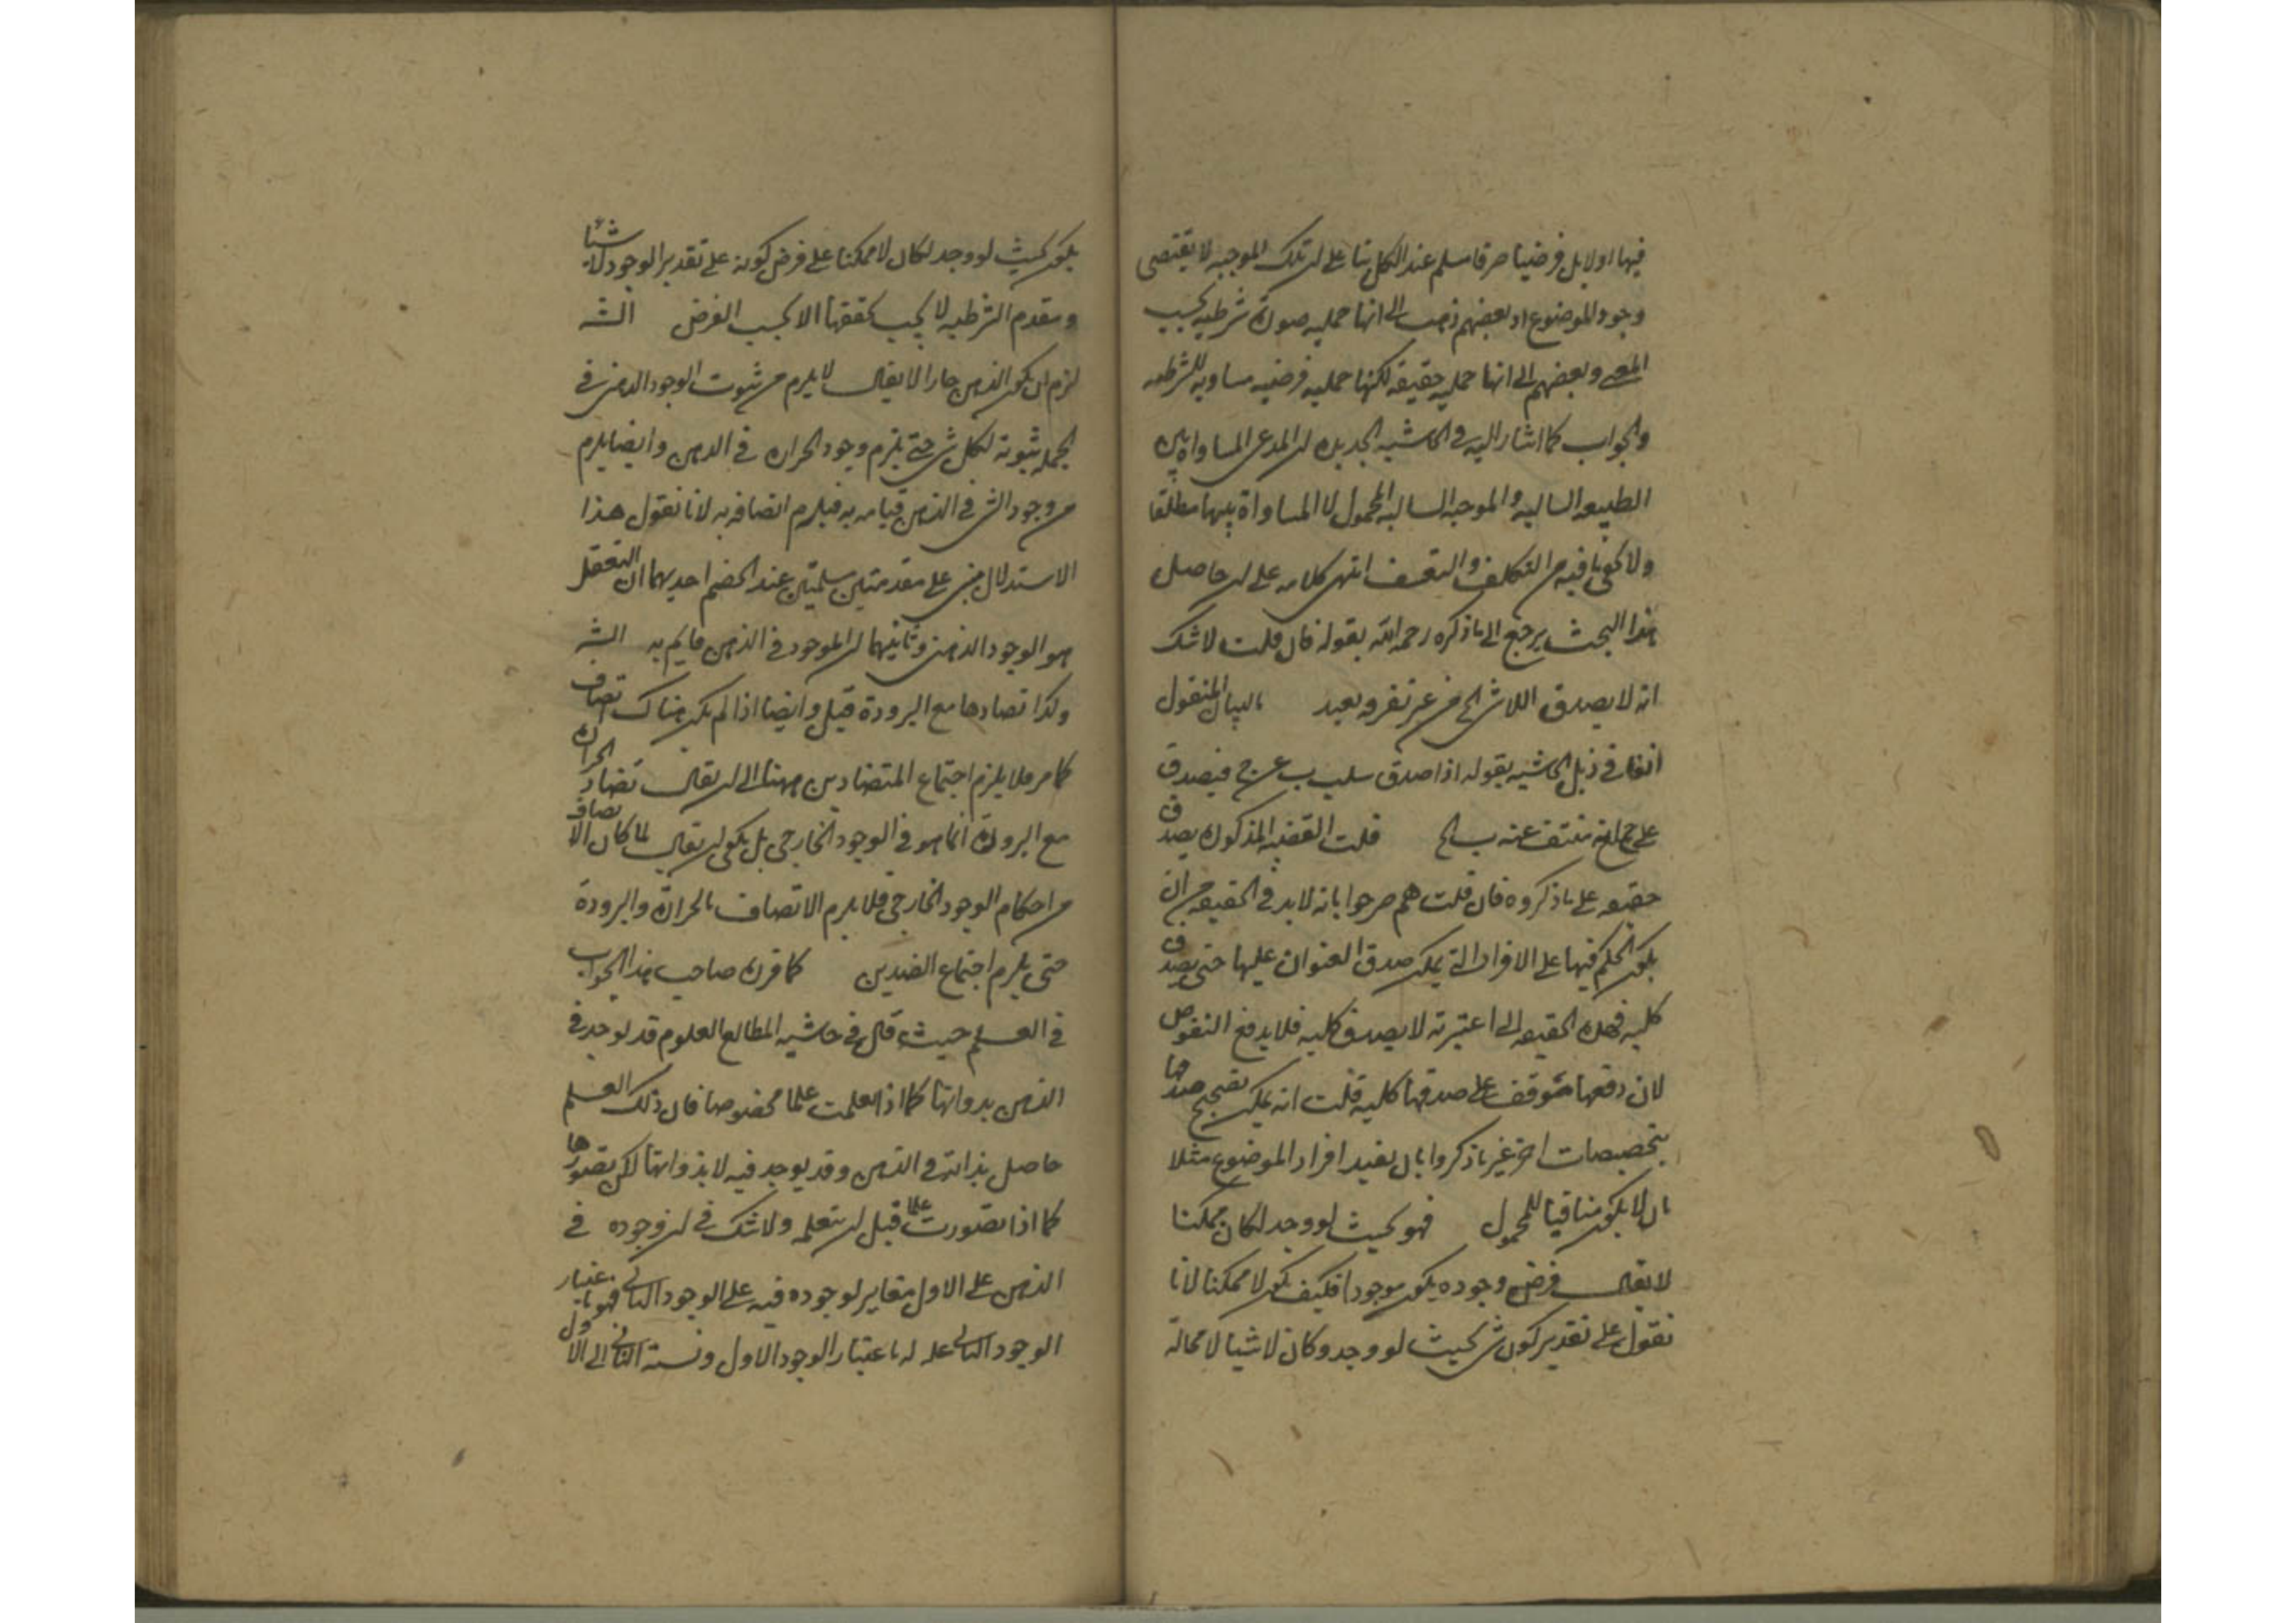 فيها اولا بل فرضيا صرفا مسلم عند الكل بنا على ان تلك الموجبه لا يقتضى
وجود الموضوع اذ بعضهم ذهب الى انها حمليه صورة شرطيه بحسب
المعنى وبعضهم الى انها حمليه حقيقة لكنها حمليه فرضيه مساويه للشرطيه
والجواب كما اشار اليه فى الحاشيه الجديده ان المدعى المساواة بين
الطبيعه السالبه والموجبه السالبه المحمول لا المساواة بينهما مطلقا
ولا يخفى ما فيه من التكلف والتعسف انتهى كلامه على ان حاصل
هذا البحث يرجع الى ما ذكره رحمه الله بقوله فان قلت لا شك
انه لا يصدق اللاشئ الخ من غير تفرقه بعيد بالبيان المنقول
انفا فى ذيل الحاشيه بقوله اذا صدق سلب ب عن ج فيصدق
على ج انه منتف عنه ب الخ قلت القضيه المذكورة يصدق
حقيقيه على ما ذكروه فان قلت هم صرحوا بانه لا بد فى الحقيقيه من ان
يكون الحكم فيها على الافراد التى يمكن صدق العنوان عليها حتى يصدق
كليه فهذه الحقيقيه التى اعتبرته لا يصدق كليه فلا يدفع النقوض
لان دفعها متوقف على صدقها كليه قلت انه يمكن تصحيح صدقها
بتخصيصات اخر غير ما ذكروا بان يقيد افراد الموضوع مثلا
بان لا يكون منافيا للمحمول فهو بحيث لو وجد لكان ممكنا
لا يقال فرض وجوده يكون موجودا فكيف يكون لا ممكنا لانا
نقول على تقدير كون شئ بحيث لو وجد وكان لا شيئا لا محالة
يكون بحيث لو وجد لكان لا ممكنا على فرض كونه على تقدير الوجود لا شيئا
ومقدم الشرطيه لا يجب تحققها الا بحسب الفرض الشه
لزم ان يكون الذهن حارا لا يقال لا يلزم من ثبوت الوجود الذهنى فى
الجمله ثبوته لكل شئ حتى يلزم وجود الحرارة فى الذهن وايضا يلزم
من وجود الشئ فى الذهن قيامه به فيلزم اتصافه به لانا نقول هذا
الاستدلال مبنى على مقدمتين مسلمتين عند الخصم احديهما ان التعقل
هو الوجود الذهنى وثانيهما ان الموجود فى الذهن قايم به الشه
وكذا تضادها مع البرودة قيل وايضا اذا لم يكن هناك اتصاف
كما مر فلا يلزم اجتماع المتضادين ههنا الى ان يقال تضاد الحرارة
مع البرودة انما هو فى الوجود الخارجى بل يكفى ان يقال لما كان الاتصاف
من احكام الوجود الخارجى فلا يلزم الاتصاف بالحرارة والبرودة
حتى يلزم اجتماع الضدين كما قرره صاحب هذا الجواب
فى العلم حيث قال فى حاشيه المطالع العلوم قد يوجد فى
الذهن بذواتها كما اذا تعلمت علما مخصوصا فان ذلك العلم
حاصل بذاته فى الذهن وقد يوجد فيه لا بذواتها لكن بتصورها
كما اذا تصورت علما قبل ان تتعلمه ولا شك فى ان وجوده فى
الذهن على الاول مغاير لوجوده فيه على الوجود الثانى فهو باعتبار
الوجود الثانى علم له باعتبار الوجود الاول ونسبة الثانى الى الاول